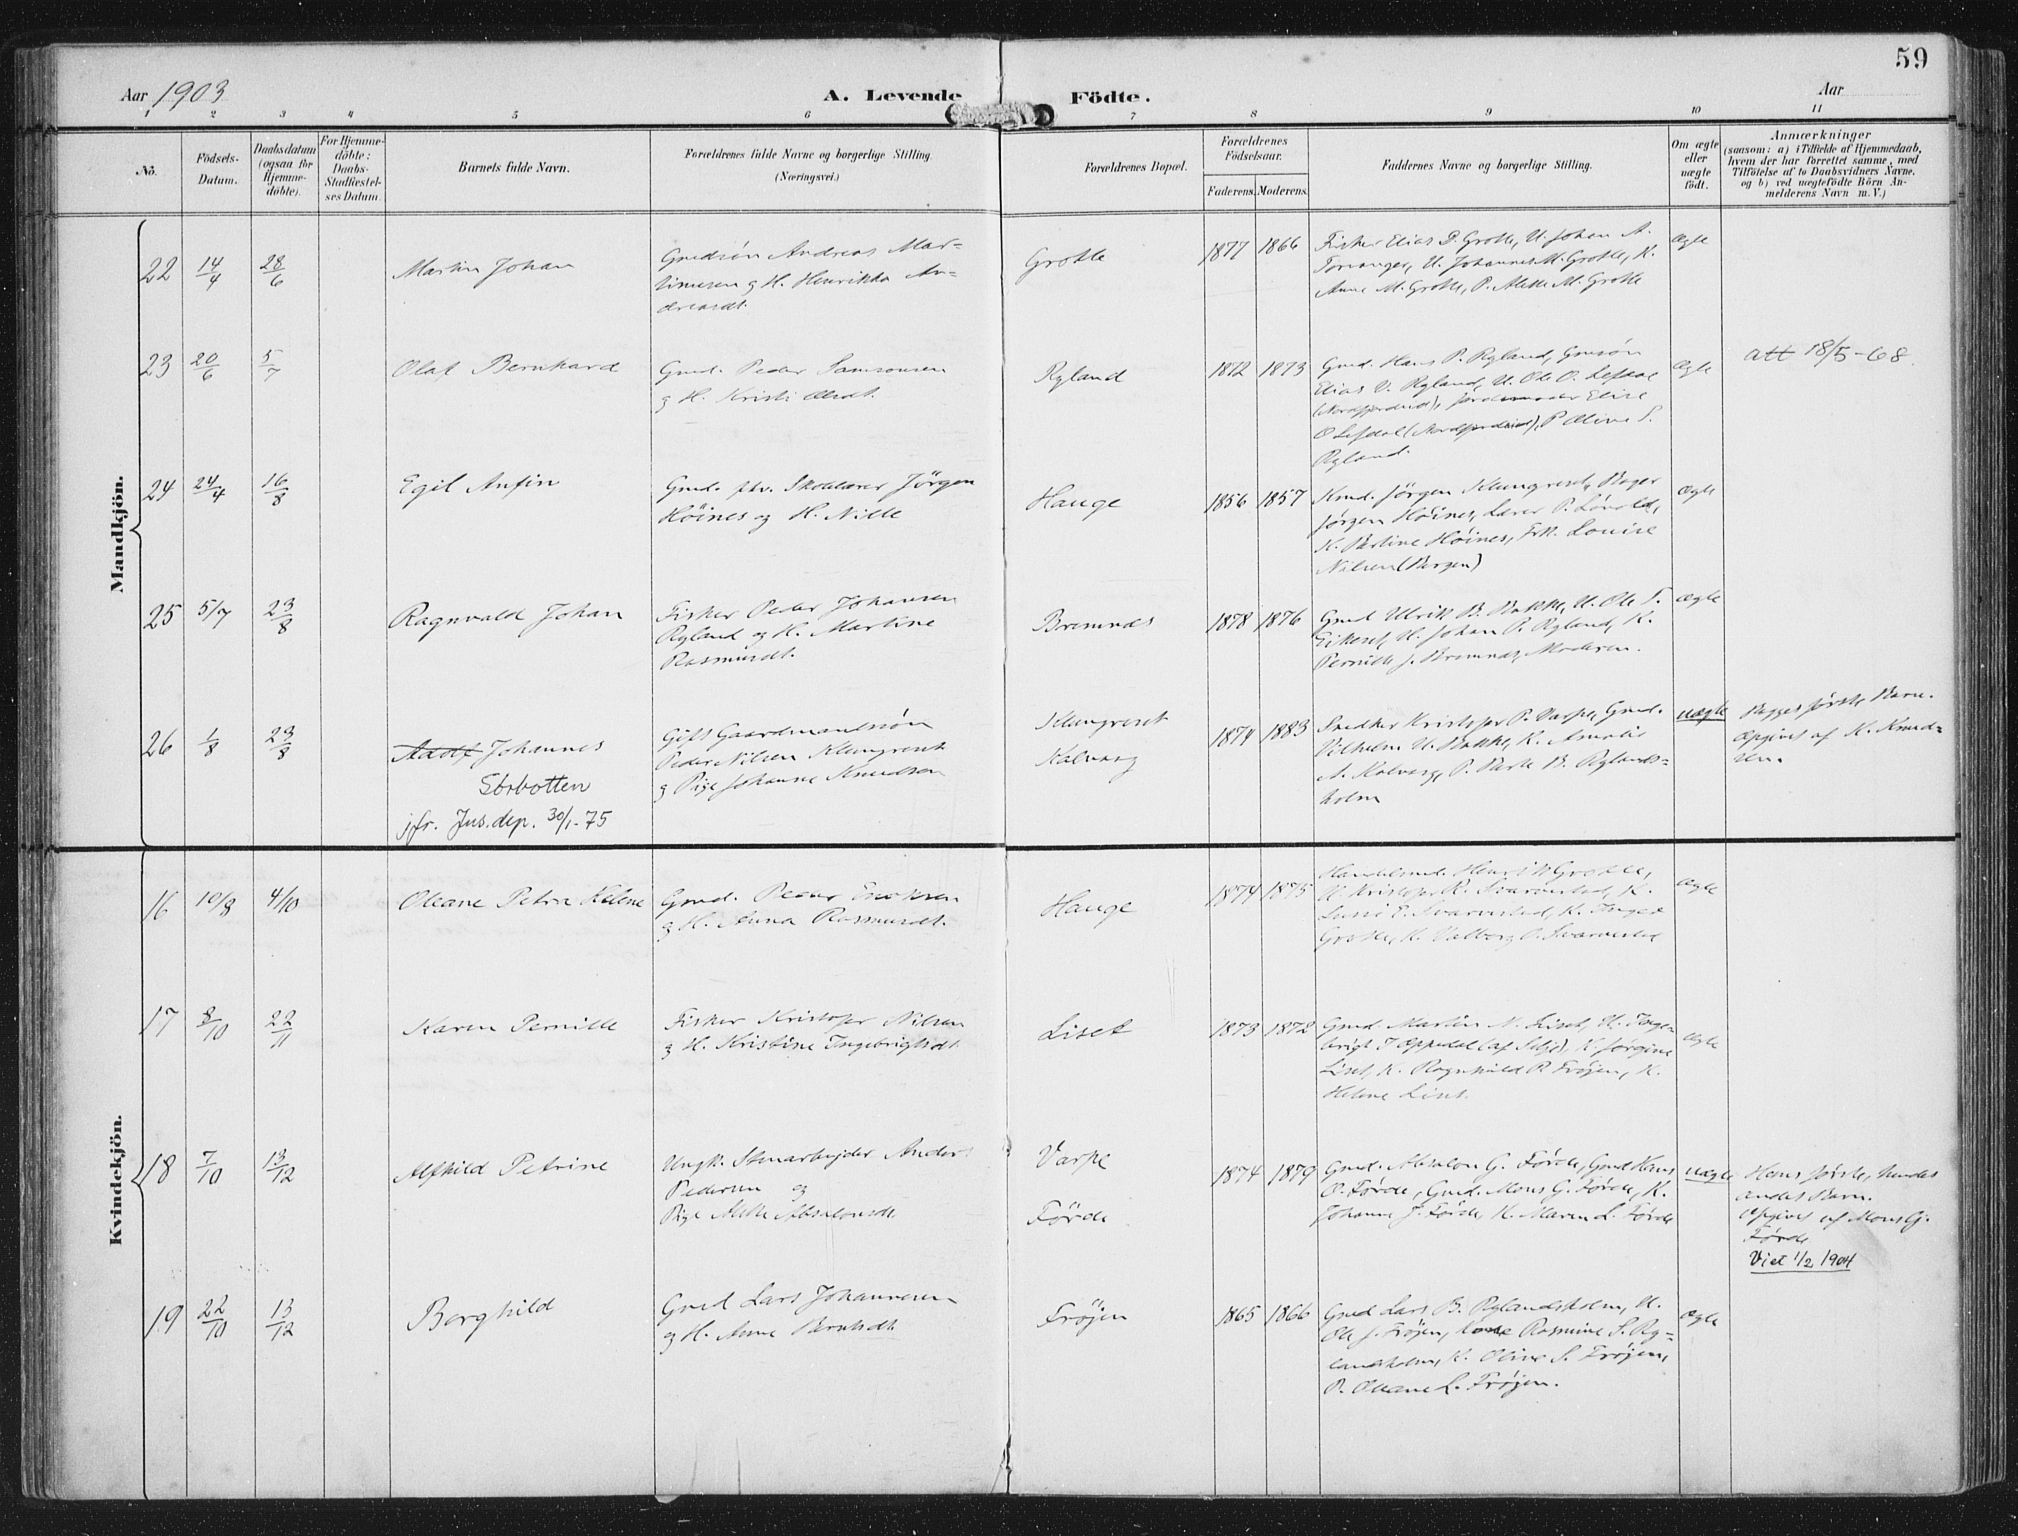 59
Aar 1903
A. Levende Födte.
Aar
1 2 3 4 5 6 7 8 9 10 11
No.
Födsels-Datum.
Daabsdatum (ogsaa for Hjemmedöbte).
For Hjemmedöbte: Daabs-Stadfæstelses Datum.
Barnets fulde Navn.
Forældrenes fulde Navne og borgerlige Stilling (Næringsvei.)
Forældrenes Bopæl.
Forældrenes Födselsaar.
Faderens. Moderens.
Faddernes Navne og borgerlige Stilling.
Om ægte eller uægte födt.
Anmærkninger
(saasom: a) i Tilfælde af Hjemmedaab,
hvem der har forrettet samme, med
Tilföielse af to Daabsvidners Navne,
og b) ved uægtefödte Börn Anmelderens Navn m. V.)
Mandkjön.
22 14/4 28/6 Martin Johan
Grudsön Andreas Mar-
tinusen og H. Henrikka An-
dreasdt.
Grotle 1877 1866
Fisker Elias D. Grotle, U. Johan A.
Torvanger, U. Johannes M. Grotle, K.
Anne M. Grotle, P. Alette M. Grotle
Ægte
23 20/6 5/7 Olaf Bernhard
Grmd. Peder Samsonsen
og H. Kristi Olsdt.
Ryland 1872 1873
Gmd. Hans P. Ryland, Gmdsön
Elias V. Ryland, U. Ole O. Lefdal
(Nordfjordeid), Elise
O Lefdal (Nordfjordeid), P Oline S.
Ryland.
Ægte
att 18/5-68.
24 24/4 16/8 Egil Anfin
Gmd. Skolelærer Jörgen
Höines og H. Nille
Hauge 1856 1857
Gmd. Jörgen Klungreset, Bager
Jörgen Höines, Lærer P. Lönold,
K. Höines, Frk. Louise
Nilsen (Bergen)
Ægte
25 5/7 23/8 Ragnvald Johan
Fisker Peder Johansen
Ryland og H. Martine
Rasmusdt.
Bremnes 1878 1876
Gmd Ulrik B. Bakke, U. Ole S.
Eikeset, U. Johan P. Ryland, K.
Pernille J. Bremnes, Moderen.
Ægte
26 1/8 23/8 Johannes
Storbotten
jfr. Jus.dep. 30/1-75
Gift Gaardmandssön
Peder Nilsen Klungreset
og Pige Johanne Knudsen
Klungreset
Kalvaag
1874 1883
Snedker Kristofer P. Varpe, Gmd.
Vilhelm U. Bakke, K. Amalie
A. Kalvaag, P. Berte B. Rylands-
holm
uægte
Begges förste Barn.
Opgivet af K. Knud-
sen.
Kvindekjön.
16 10/8 4/10 Oleane Petra Helene
Gmd. Peder Eriksen
og H. Anna Rasmusdt.
Hauge 1874 1875
Handelsmd. Henrik Grotle,
U. Kristofer R. Svarvestad, K.
Lussi E. Svarvestad, K. Inger
Grotle, K. Valborg O. Svarvestad
Ægte
17 8/10 22/11 Karen Pernille
Fisker Kristofer Nilsen
og H. Kristine Ingebrigtsdt.
Liset 1873 1872
Gmd. Martin N. Liset, U. Inge-
brigt J. Oppedal (af Selje), K. Jörgine
Liset, K. Ragnhild R. Fröjen, K.
Helene Liset
Ægte
18 7/10 13/12 Alfhild Petrine
Ungk. Stenarbejder Anders
Pedersen og
Pige Mette Absalonsdt.
Varpe
Förde
1874 1879
Gmd. Absalon G. Förde, Gmd Hans
O. Förde, Gmd. Mons G. Förde, K.
Johanne J. Förde, K. Maren L. Förde
uægte
Hans förste, hendes
andet Barn.
Opgivet af Mons G.
Förde
Viet 1/2 1904
19 22/10 13/12 Borghild
Gmd Lars Johannesen
og H. Anne Berntsdt.
Fröjen 1865 1866
Gmd Lars B. Rylandsholm, U.
Ole J. Fröjen, Kone Rasmine S. Ry-
landsholm, K. Oline S. Fröjen,
P. Oleane L. Fröjen.
Ægte